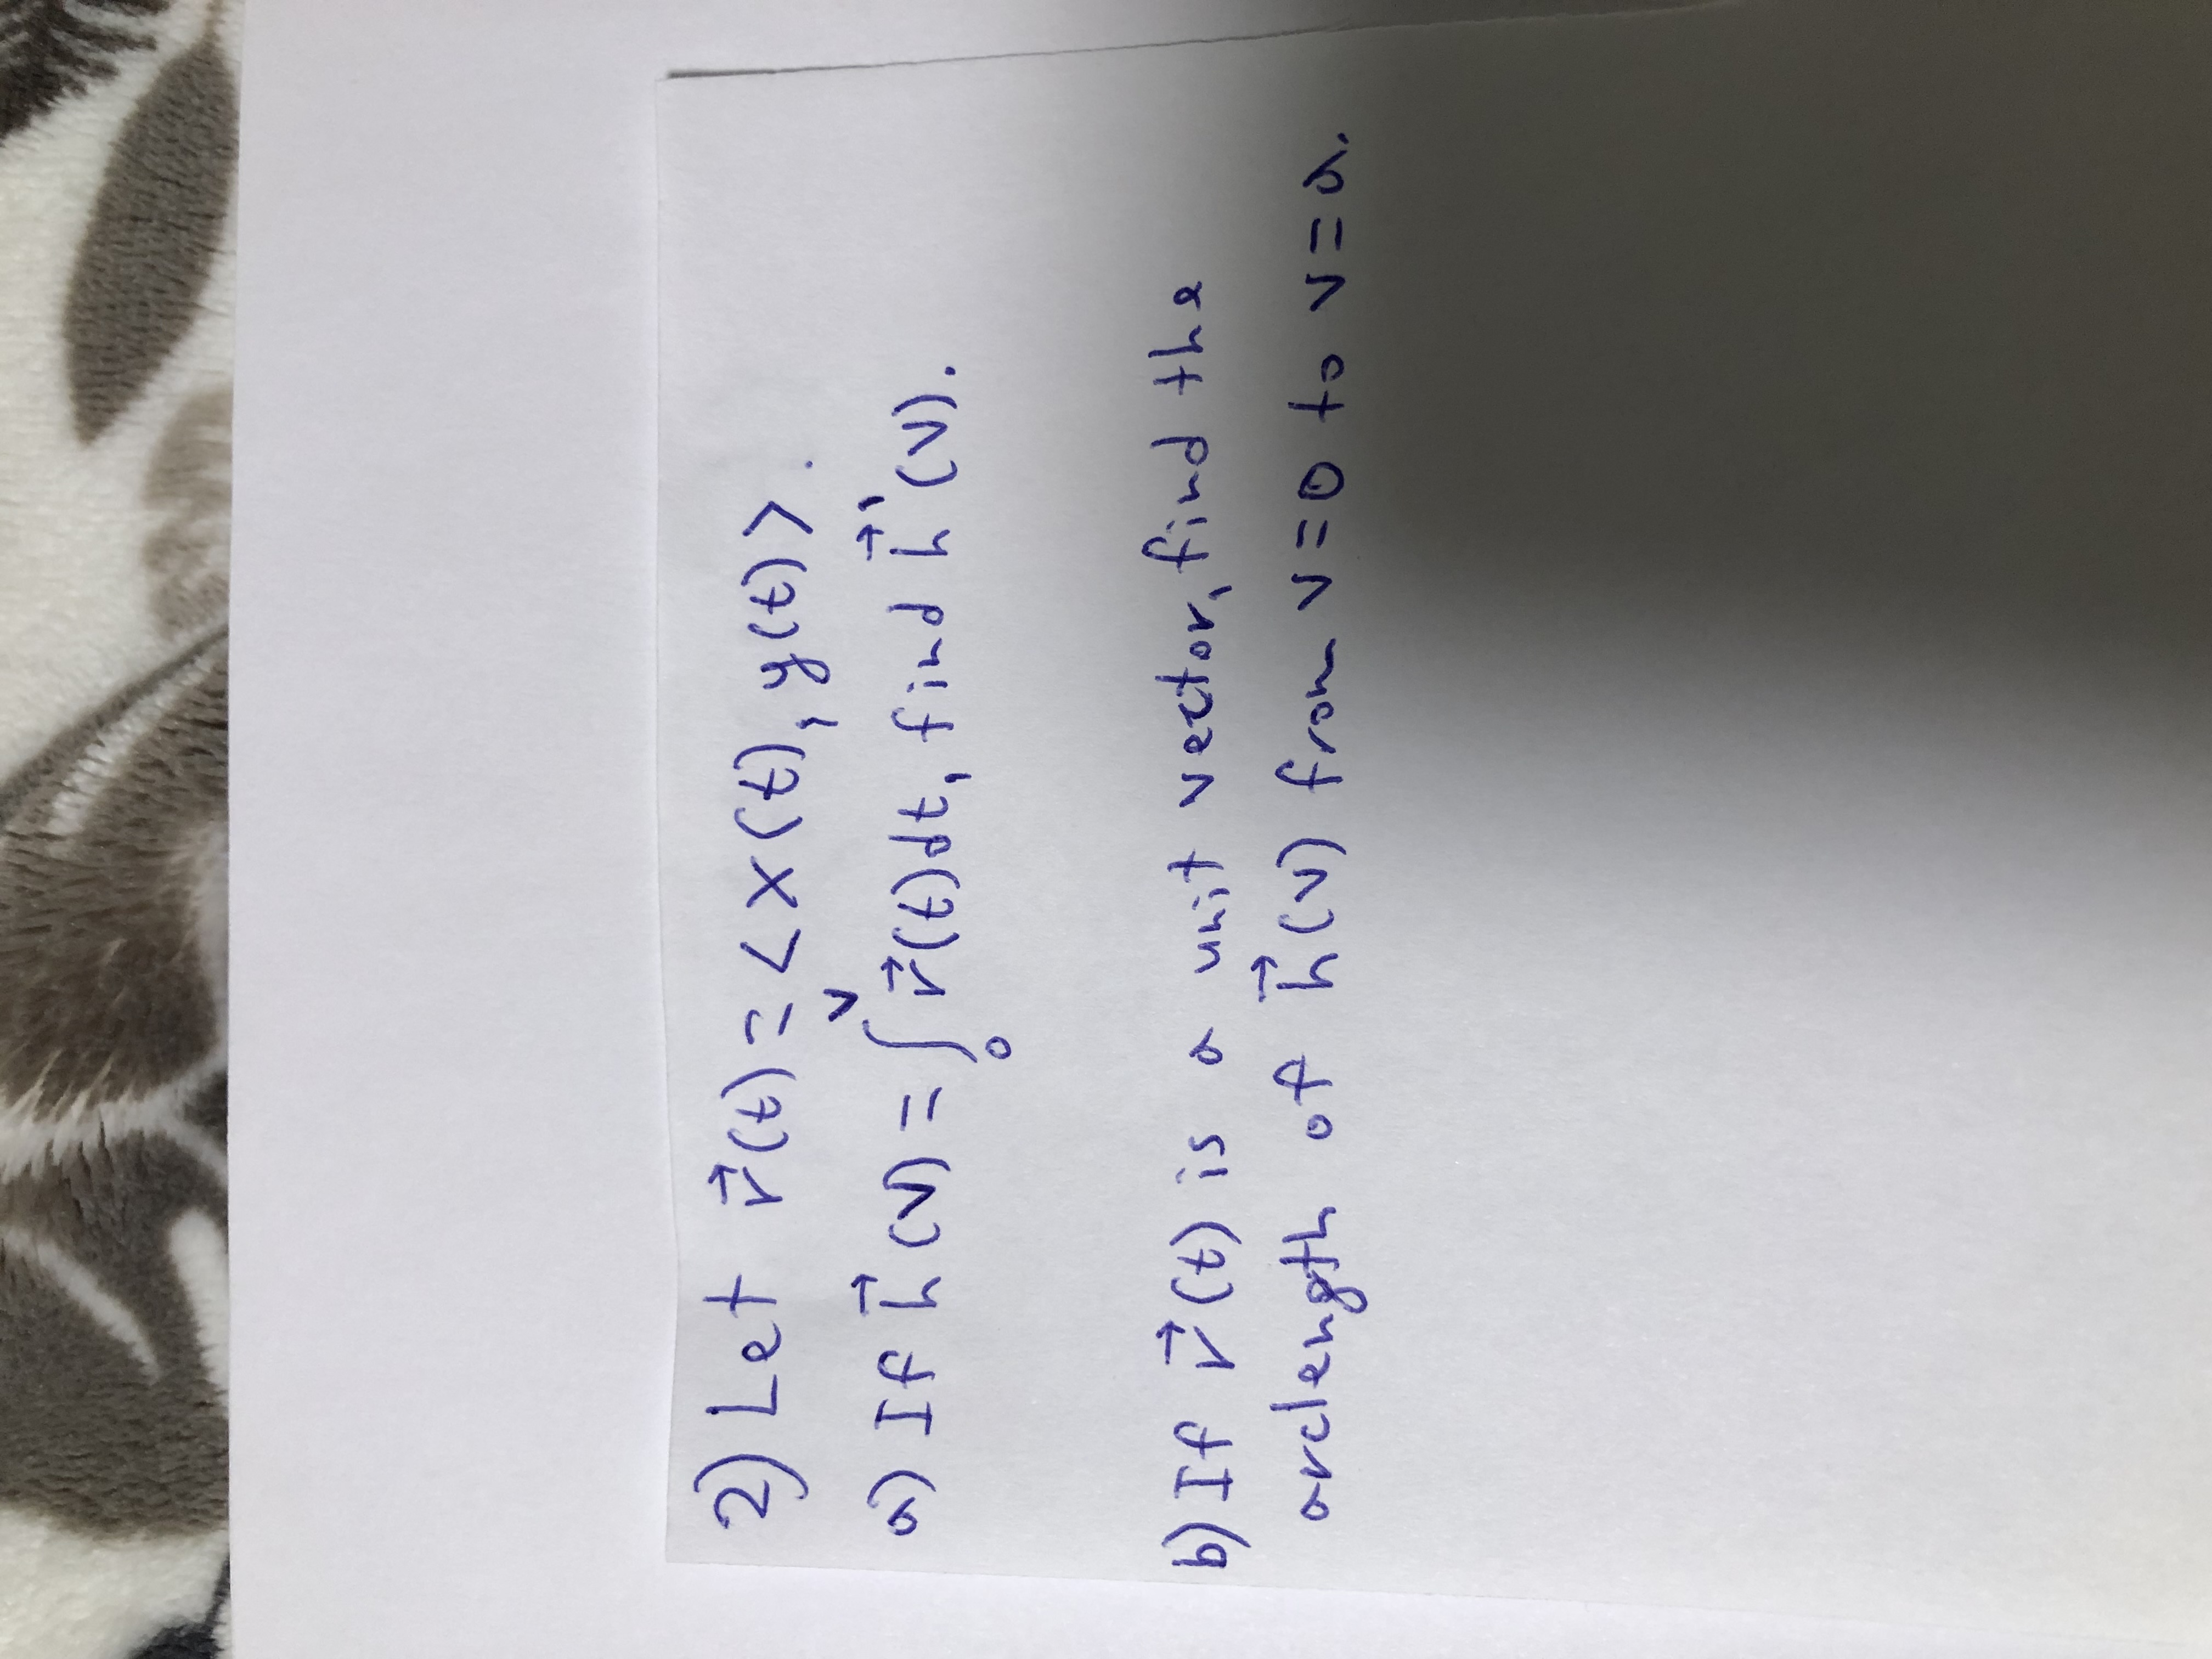 2) Let r⃗(t) = <x(t), y(t)>.
a) If h⃗(v) = ∫₀ᵛ r⃗(t)dt, find h⃗'(v).
b) If r⃗(t) is a unit vector, find the
arclength of h⃗(v) from v=0 to v=a.